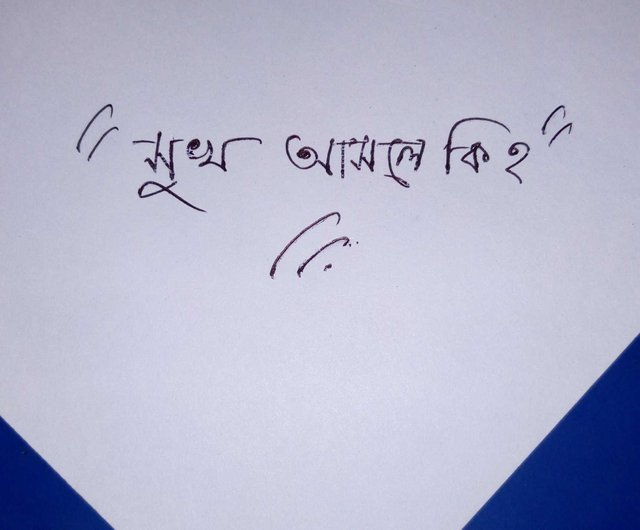 "সুখ আসলে কি?"